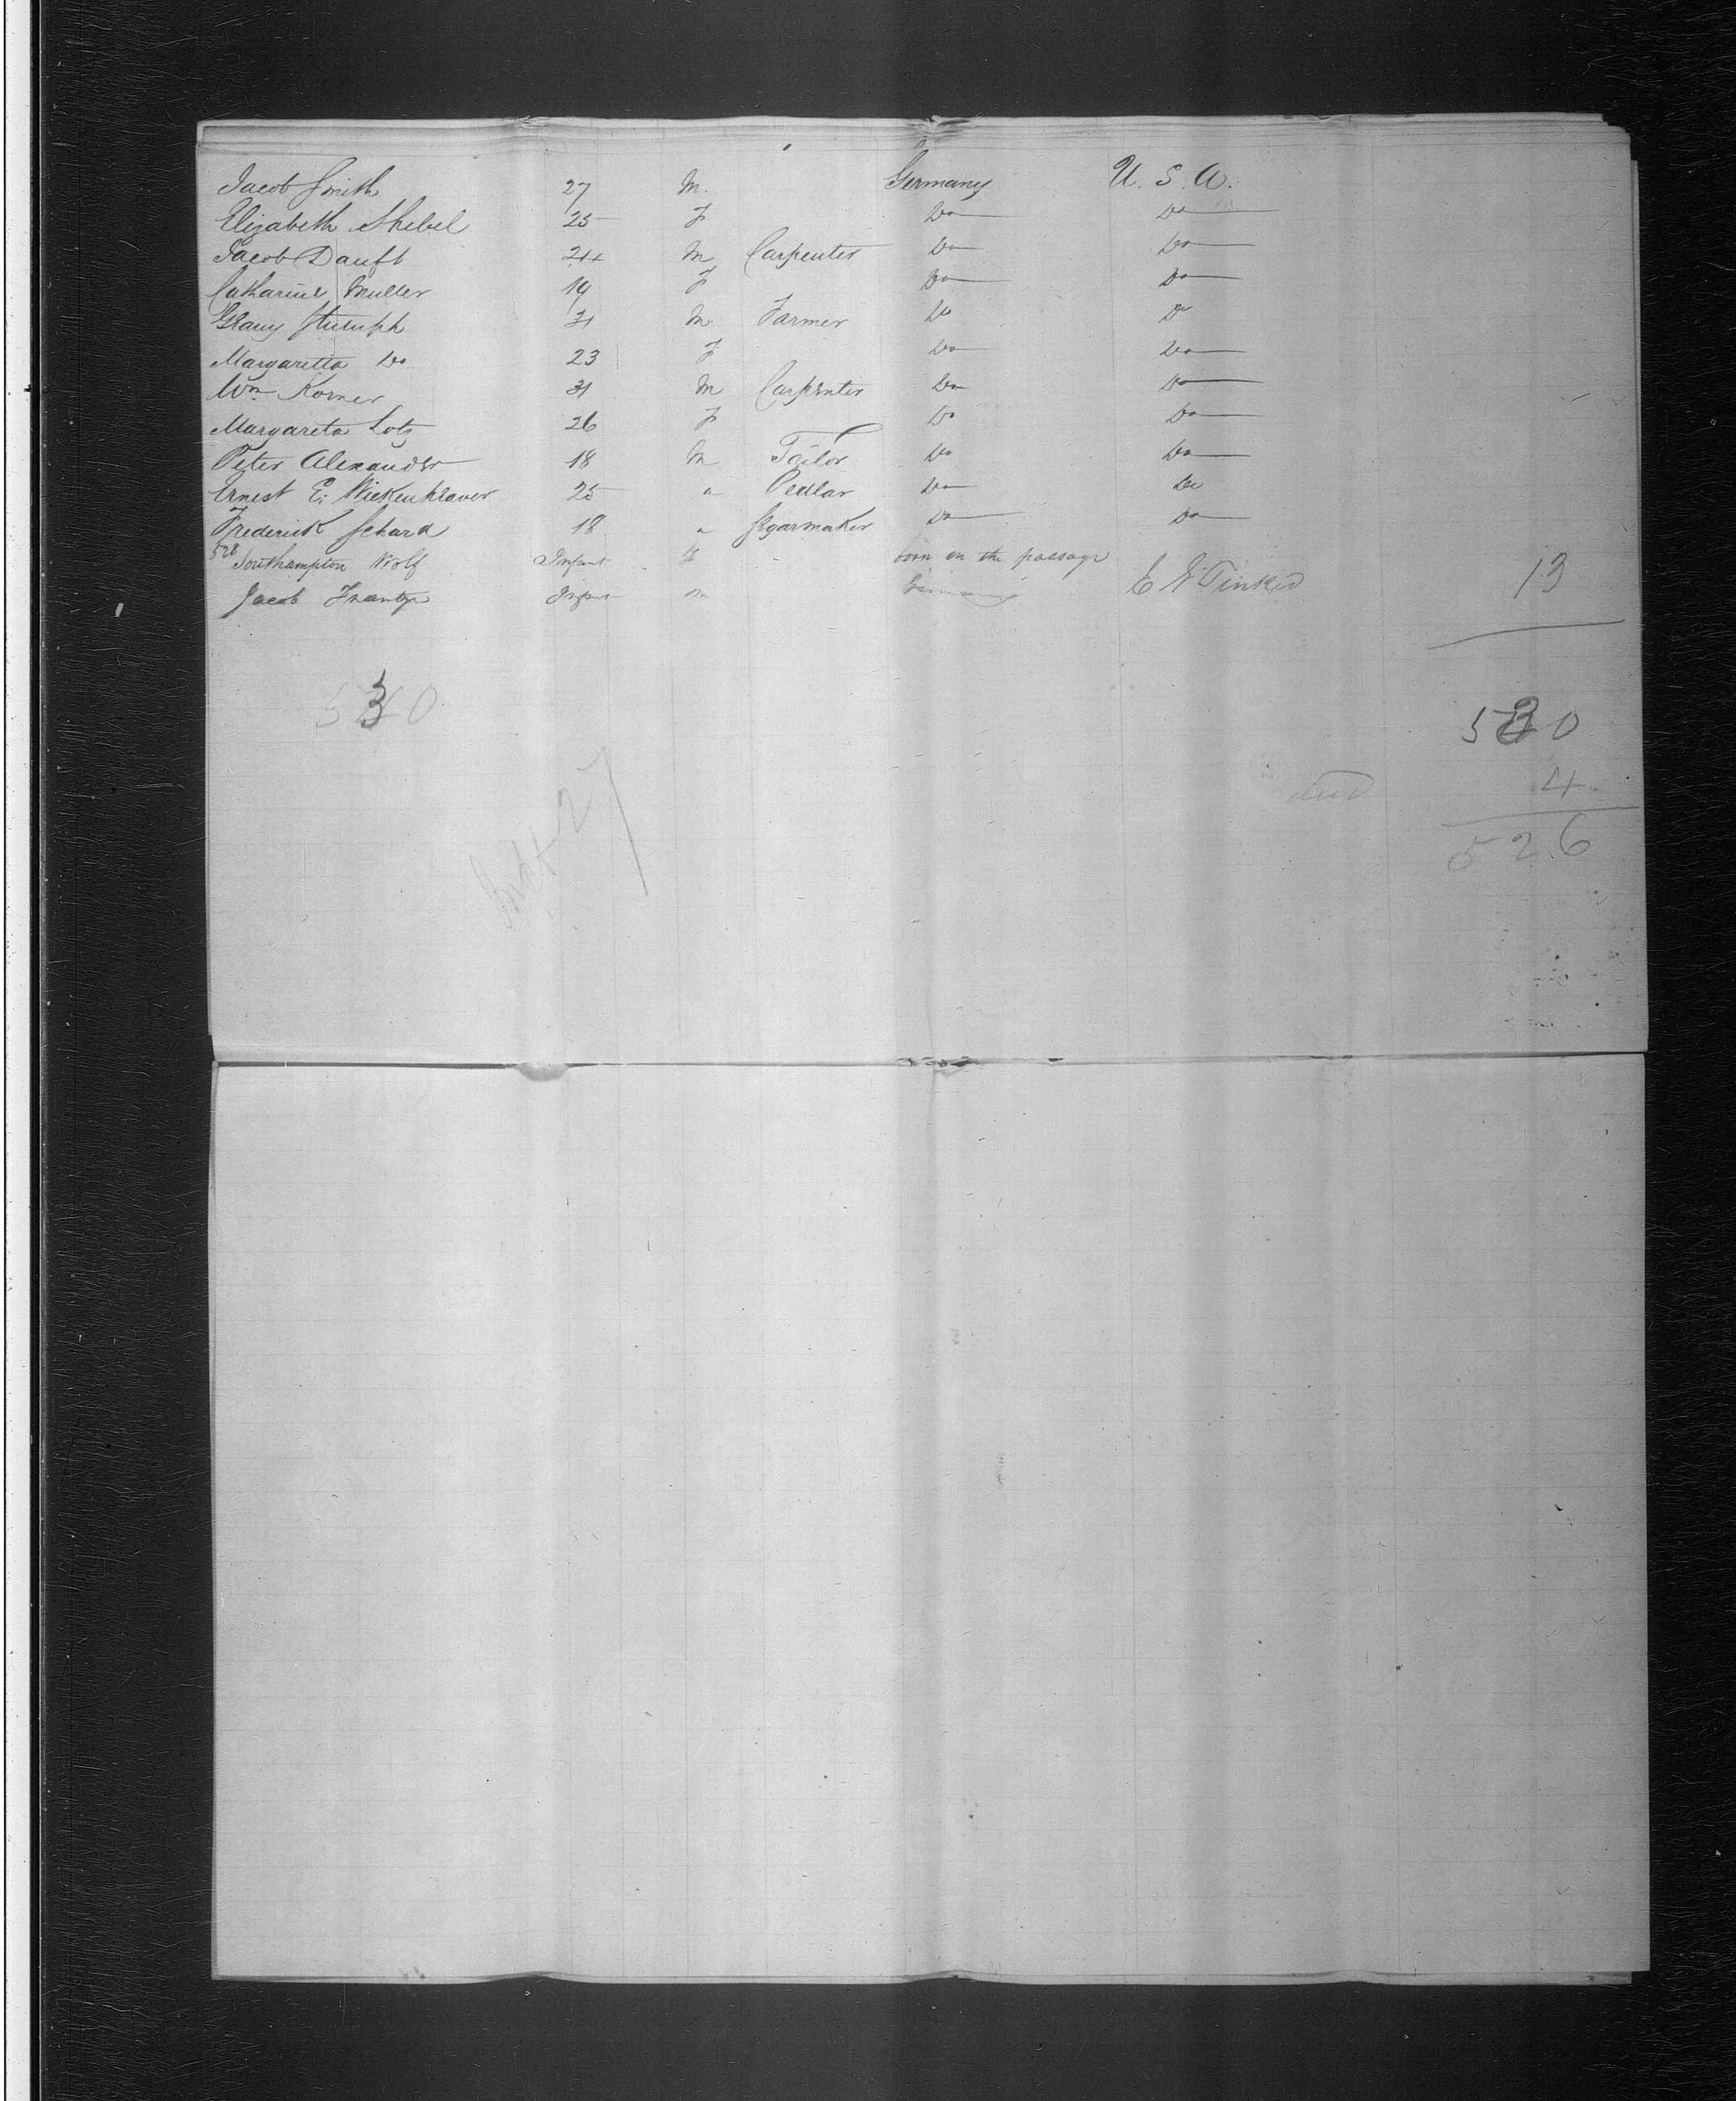 Jacob Smith 27 M. Germany U. S. A.
Elizabeth Shebel 25 F Do Do
Jacob Dauft 24 M Carpenter Do Do
Catharine Muller 19 F Do Do
Stumph 31 M Farmer Do Do
Margaretta Do 23 F Do Do
Wm Korner 31 M Carpenter Do Do
Margareta Lotz 26 F Do Do
Peter Alexander 18 M Tailor Do Do
Ernest E. Wickenklaver 25 " Pedlar Do Do
Frederick Schard 18 " Segarmaker Do Do
528 Southampton Wolf Infant born on the passage
Jacob Frantz Infant m Germany E. E. Tinker 13
530 530
4
526